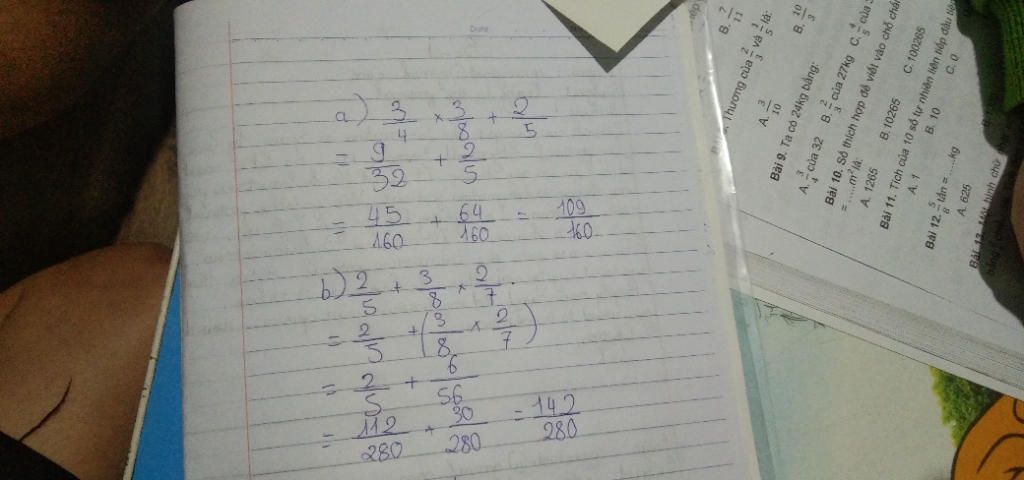 Date
a) 3/4 × 3/8 + 2/5
= 9/32 + 2/5
= 45/160 + 64/160 = 109/160
b) 2/5 + 3/8 × 2/7.
= 2/5 + (3/8 × 2/7)
= 2/5 + 6/56
= 112/280 + 30/280 = 142/280
B. 7/11
Thương của 2/3 và 1/5 là:
A. 3/10 B. 10/3
Bài 9. Ta có 24kg bằng:
A. 3/4 của 32 B. 2/3 của 27kg C. 4/5 của 3
Bài 10. Số thích hợp để viết vào chỗ chấ
= .....m² là:
A. 1265 B. 10265 C. 100265
Bài 11. Tích của 10 số tự nhiên liên tiếp đầu tiê
A. 1 B. 10 C. 0
Bài 12. 5/8 tấn = .....kg
A. 625
Bài 13. hình chữ